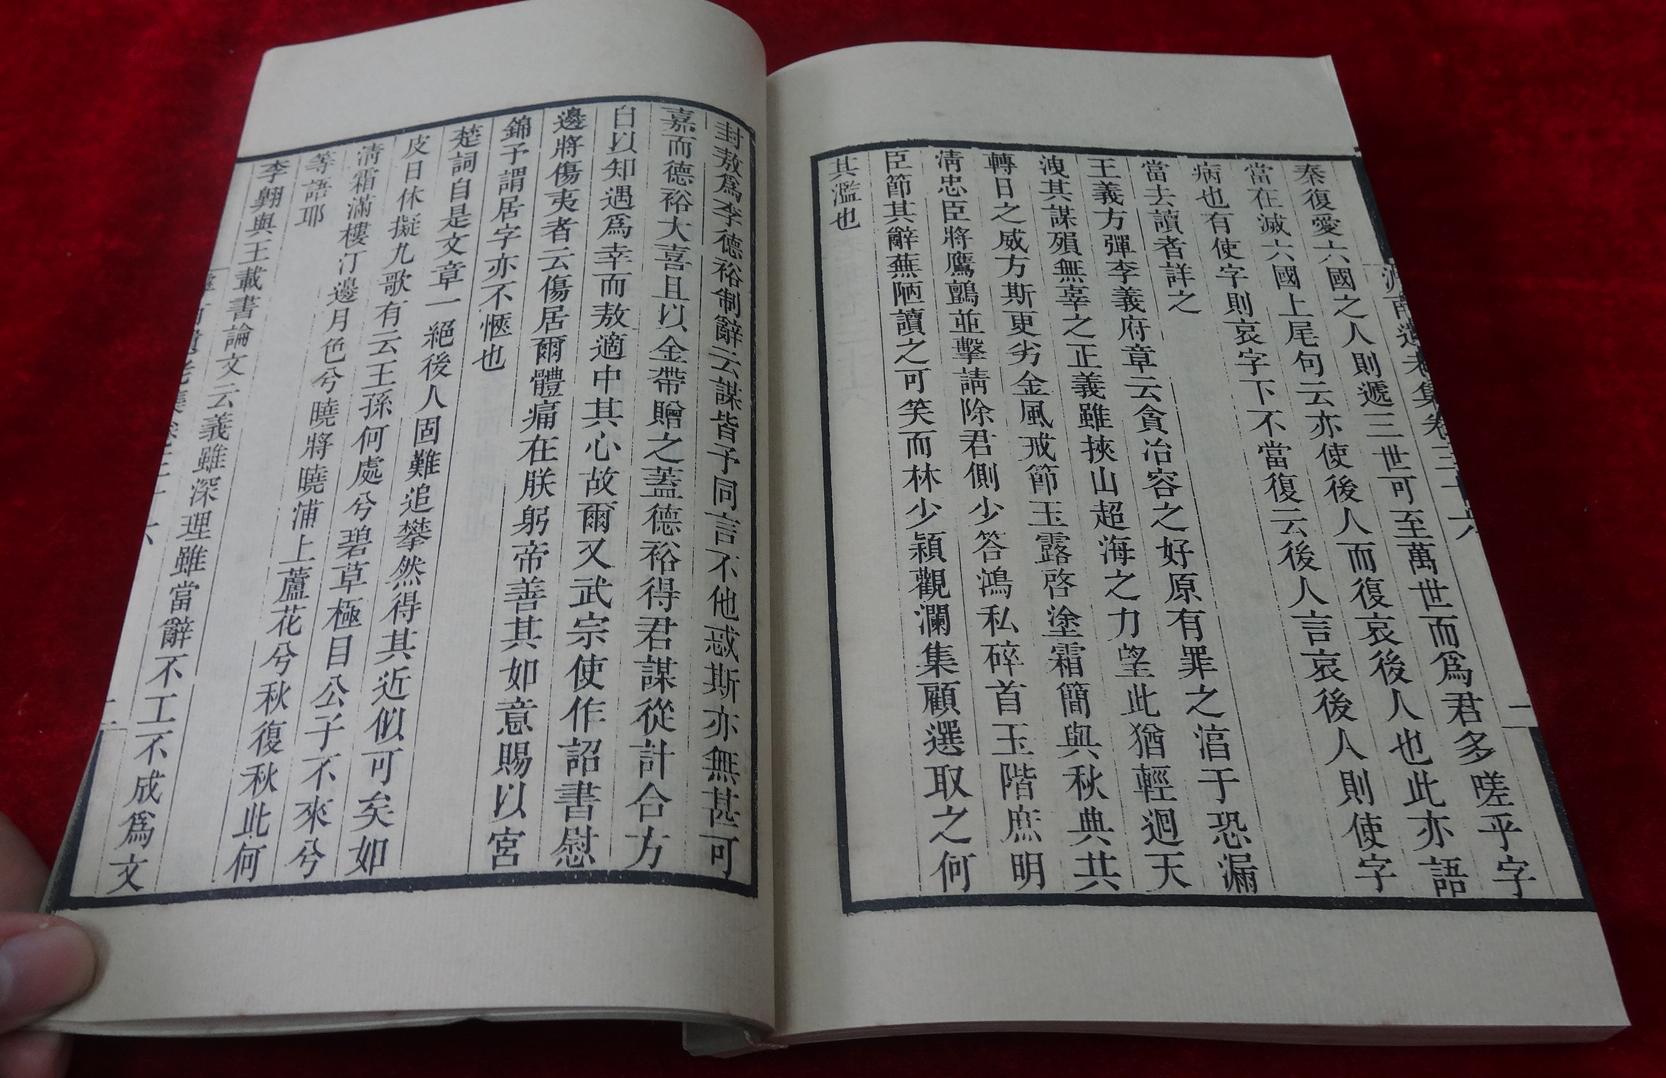 滹南遺老集卷三十六
二
秦復愛六國之人則遞三世可至萬世而爲君多嗟乎字
當在滅六國上尾句云亦使後人而復哀後人也此亦語
病也有使字則哀字下不當復云後人言哀後人則使字
當去讀者詳之
王義方彈李義府章云貪冶容之好原有罪之淳于恐漏
洩其謀殞無辜之正義雖挾山超海之力望此猶輕迴天
轉日之威方斯更劣金風戒節玉露啓塗霜簡與秋典共
清忠臣將鷹鸇並擊請除君側少答鴻私碎首玉階庶明
臣節其辭蕪陋讀之可笑而林少穎觀瀾集顧選取之何
其濫也
封敖爲李德裕制辭云謀皆予同言不他惑斯亦無甚可
嘉而德裕大喜且以金帶贈之蓋德裕得君謀從計合方
自以知遇爲幸而敖適中其心故爾又武宗使作詔書慰
邊將傷夷者云傷居爾體痛在朕躬帝善其如意賜以宮
錦予謂居字亦不愜也
楚詞自是文章一絕後人固難追攀然得其近似可矣如
皮日休擬九歌有云王孫何處兮碧草極目公子不來兮
清霜滿樓汀邊月色兮曉將曉浦上蘆花兮秋復秋此何
等語耶
李翺與王載書論文云義雖深理雖當辭不工不成爲文
二